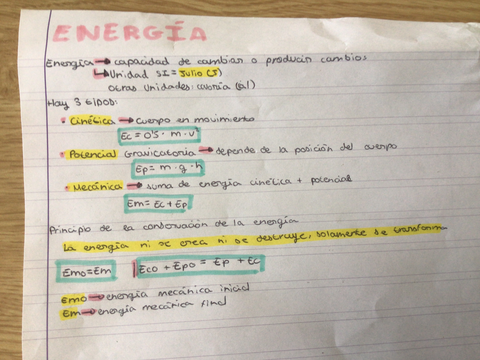 ENERGÍA
Energía → capacidad de cambiar o producir cambios
↳ Unidad SI = Julio (J)
otras unidades: caloría (cal)
Hay 3 tipos:
• Cinética → cuerpo en movimiento
Ec = 0'5 · m · v²
• Potencial Gravitatoria → depende de la posición del cuerpo
Ep = m · g · h
• Mecánica → suma de energía cinética + potencial
Em = Ec + Ep
Principio de la conservación de la energía
La energía ni se crea ni se destruye, solamente se transforma
Emo = Em Eco + Epo = Ep + Ec
Emo → energía mecánica inicial
Em → energía mecánica final